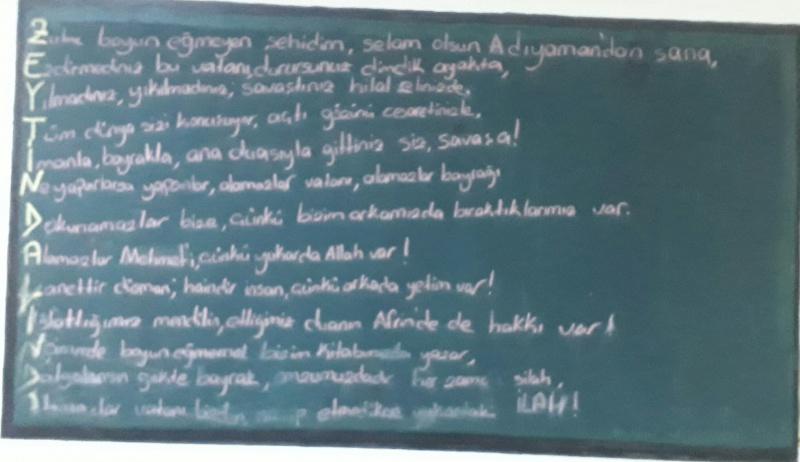 Zulme boyun eğmeyen şehidim, selam olsun Adıyaman'dan sana,
Ezdirmediniz bu vatanı, durursunuz dimdik ayakta,
Yılmadınız, yıkılmadınız, savaştınız hilal elinizde,
Tüm dünya sizi konuşuyor, açtı gözünü cesaretinizle,
İmanla, bayrakla, ana duasıyla gittiniz siz, savaşa!
Ne yaparlarsa yapsınlar, alamazlar vatanı, alamazlar bayrağı
Dokunamazlar bize, çünkü bizim arkamızda bıraktıklarımız var.
Alamazlar Mehmet'i, çünkü yukarda Allah var!
Lanettir düşman, haindir insan, çünkü arkada yetim var!
Islattığımız mendilin, ettiğiniz duanın Afrin'de de hakkı var!
boyun eğmemek bizim kitabımızda yazar,
gökte bayrak, her zaman silah,
vatanı İLAH!